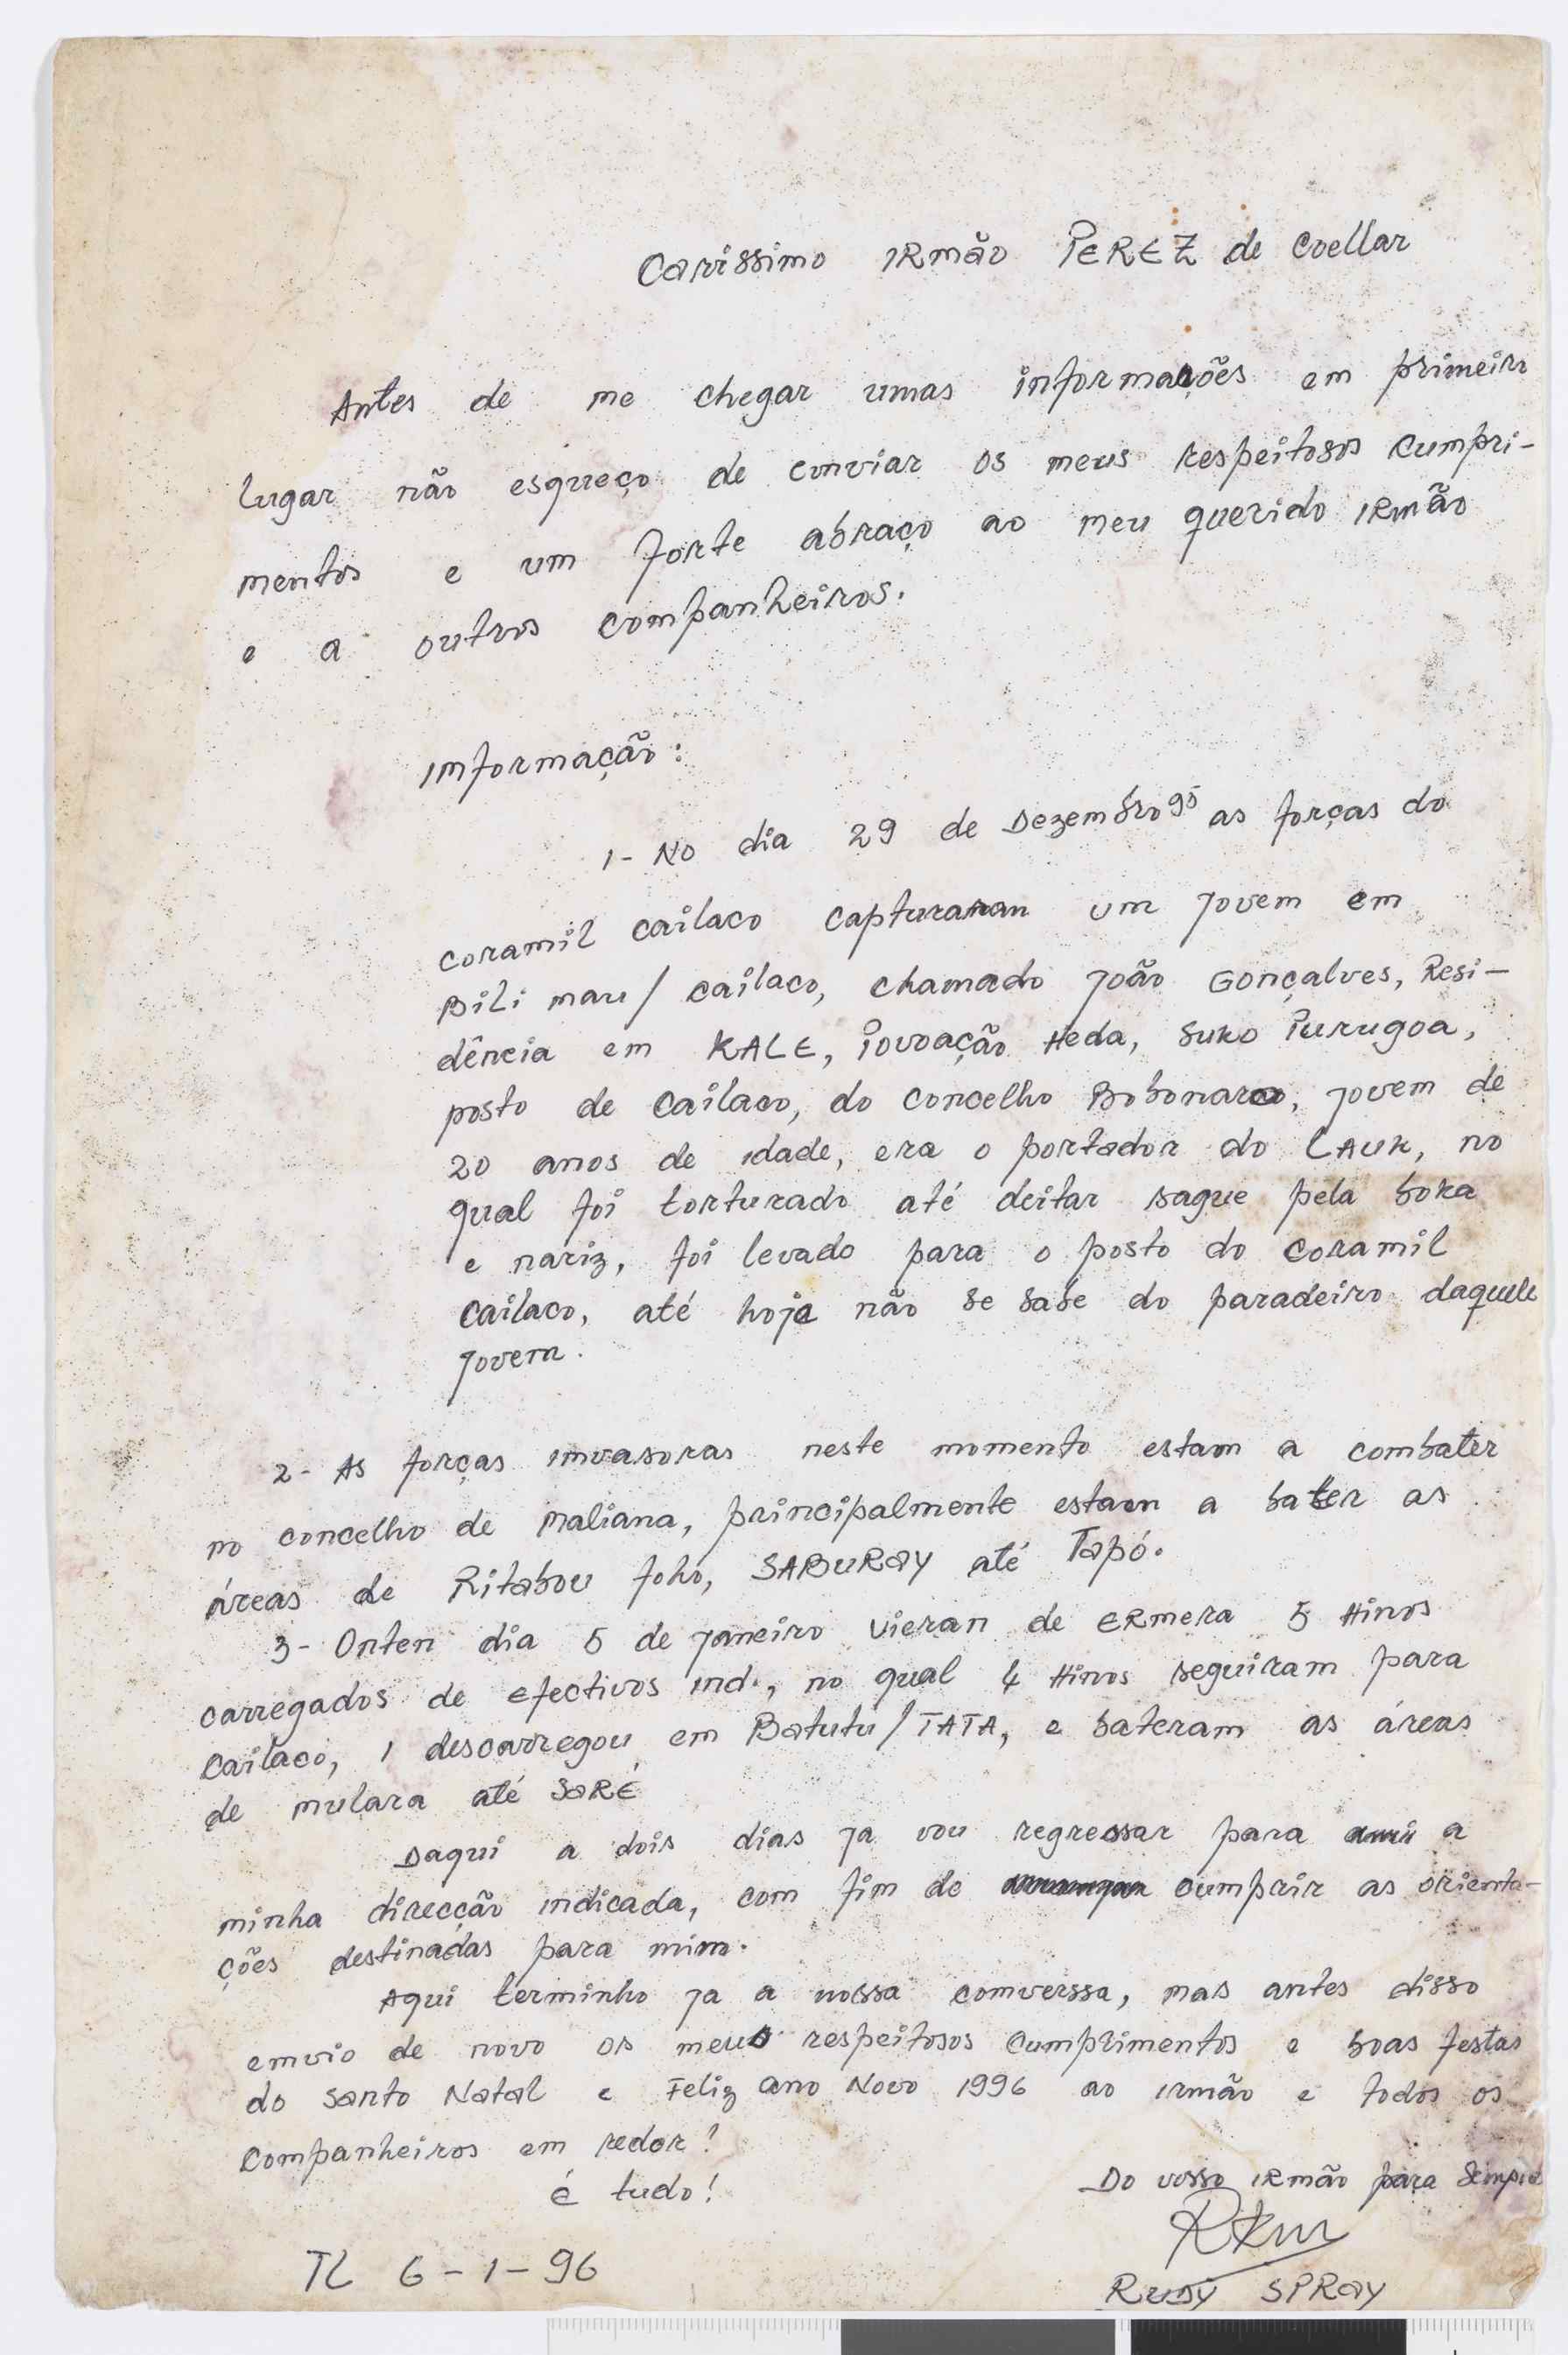 Caríssimo IRmão PEREZ de Coellar
Antes de me chegar umas informações em primeiro
lugar não esqueço de conviar os meus respeitosos cumpri-
mentos e um forte abraço ao meu querido IRmão
e a outros companheiros.
Informação:
1- No dia 29 de Dezembro 95 as forças do
coramil cailaco capturaran um jovem em
Bili mau/ cailaco, chamado João Gonçalves, Resi-
dência em KALE, Povoação Heda, suko Purugoa,
posto de cailaco, do concelho Bobonaro, jovem de
20 anos de idade, era o portador do LAUK, no
qual foi torturado até deitar sague pela boka
e nariz, foi levado para o posto do coramil
cailaco, até hoje não se sabe do paradeiro daquele
jovem.
2- As forças invasoras neste momento estam a combater
no concelho de maliana, principalmente estam a bater as
áreas de Ritabou foho, SABURAY até Tapó.
3- Onten dia 5 de janeiro vieran de ERmera 5 Hinos
carregados de efectivos ind., no qual 4 Hinos seguiram para
Cailaco, 1 descarregou em Batutu/TATA, e bateram as áreas
de mulara até SaRé
Daqui a dois dias ja vou regressar para a
minha direcção indicada, com fim de cumprir as orienta-
ções destinadas para mim.
Aqui terminho ja a nossa comverssa, mas antes disso
emvio de novo os meus respeitosos cumprimentos e boas festas
do santo Natal e Feliz ano Novo 1996 ao irmão e todos os
companheiros em redor!
é tudo!
Do vosso IRmão para Sempre
TL 6-1-96
RUDY SPRAY